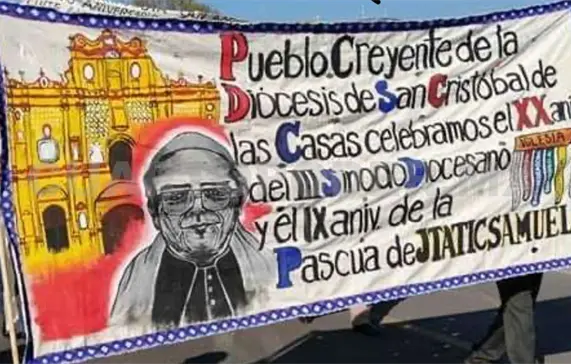 ANIVERSARIO
Pueblo Creyente de la
Diócesis de San Cristóbal de
las Casas celebramos el XX ani
del III Sinodo Diocesano
IGLESIA
y él IX aniv. de la
Pascua de JTATIC SAMUEL